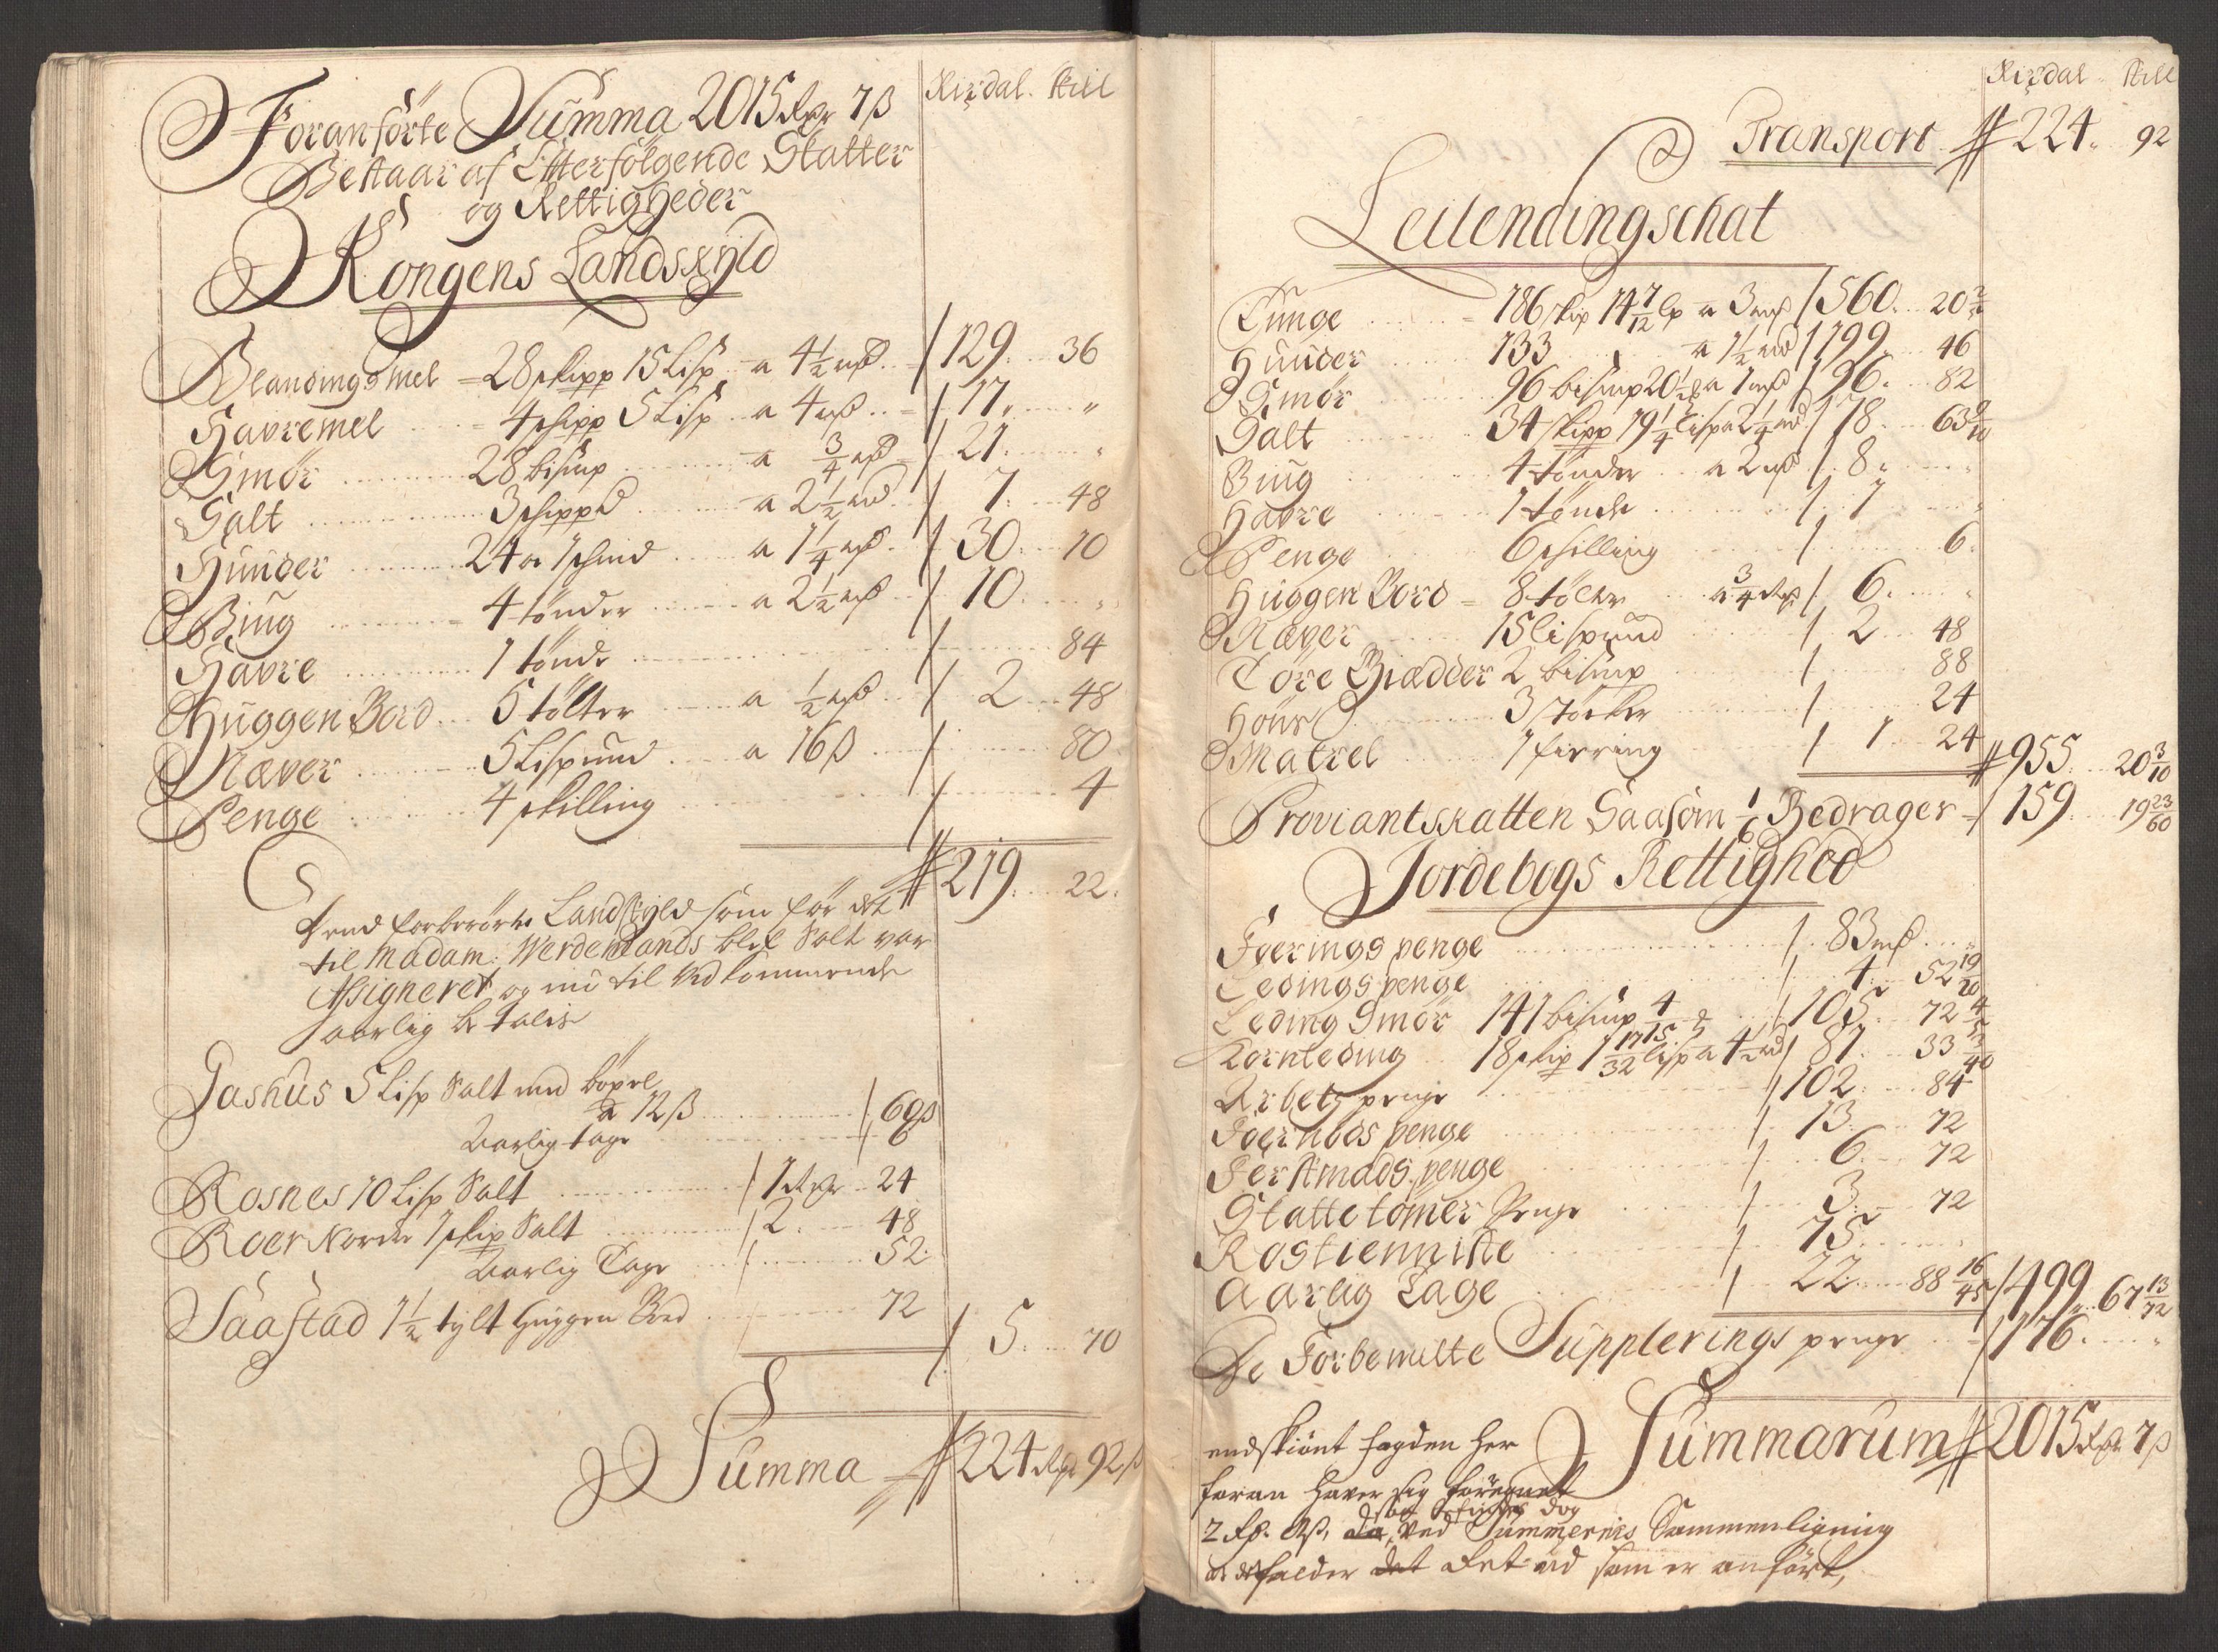 Rixdal. skill
Foranförte Summa 2015 Rdr 7 ß
Bestaar af Efterfölgende Skatter
og Rettigheder
Kongens Landskyld
Blandingsmel = 28 skipp 15 Lisp a 4½ rd / 129. 36
Havremel 4 skipp 5 Lisp a 4 rd / 17. "
Smör 28 bism̄p a ¾ rd / 21. "
Salt 3 skippd a 2½ rd / 7. 48
Huuder 24 a 1 skind a 1¼ rd / 30. 10
Biug 4 tönder a 2½ rd / 10. "
Havre 1 tönde / 84
Huggen Bord 5 tölter a ½ rd / 2 48
Næver 5 Lispund a 16 ß / 80
Penge 4 skilling / 4
219. 22.
forberörte Landskyld som för
til Madam: Werdenlands blef Salt var
Assigneret og nu til Vedkommende
aarlig betalis
Gashus 5 Lisp Salt med
a 12 ß / 60 ß
Aarlig tage 6
Rosnes 10 Lisp Salt / 1 Rdr 24
Roer Nordre 1 skip Salt / 2. 48
Aarlig Tage / 52.
Saastad 1½ tylt Huggen Bord 72
/ 5. 70
Summa 224 Rdr 92 ß
Rixdal. skill
Transport 224. 92
Leilendingschat
Tunge 186 skip 14 7/12 lp a 3 rd / 560. 20 ½
Huuder 133 a 1½ rd / 199. 46
Smör 96 bisn̄p 20½ a 1 rd / 96. 82
Salt 34 skipp 19¼ lisp a 2¼ rd / 78. 63 9/10
Biug 4 tönder a 2 rd / 8. "
Havre 1 tönde / 1 "
Penge 6 skilling / 6.
Huggen Bord = 8 tölter a ¾ rd / 6. "
Næver 15 lispund / 2 48
Töre Giedder 2 bisn̄p / 88
Höns 3 støcker / 24
Matrel 1 fierring / 1 24
955. 20 3/10
Proviantskatten Saasom 1/6 Bedrager / 159. 19 23/60
Jordebogs Rettighed
Foerings penge / 83 rd "
Ledings penge / 4. 52 19/20
Leding Smör 141 bisn̄p 4/15 / 105. 72 4/5
Kornleding 18 skip 1 17/32 lisp a 4½ rd / 81. 33 3/40
Arbetz penge / 102. 84
Foernøds penge / 13. 72
Ferstmads penge / 6. 72
Skattetömer Penge / 3. 72
Rostienniste / 75. "
Aarlig Tage / 22. 88 16/45
/ 499. 67 13/72
De Forbemelte Supplerings penge / 176. "
Summarum 2015 Rdr 7 ß
endskiönt fogden her
foran haver sig
ved Summernis Sammenligning
det ud som er anfört,